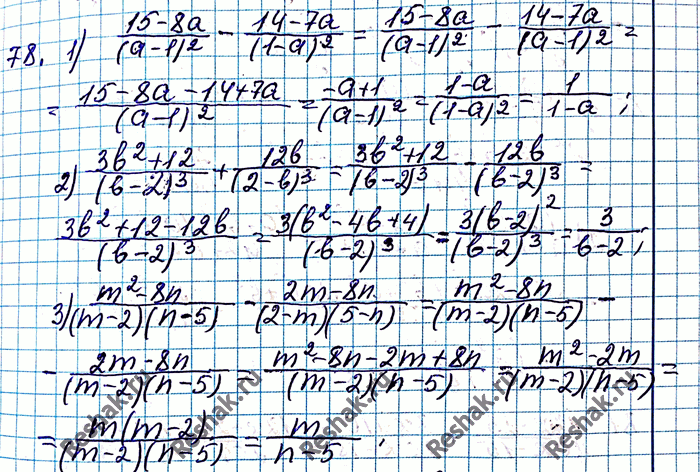 78. 1) (15-8a)/(a-1)² - (14-7a)/(1-a)² = (15-8a)/(a-1)² - (14-7a)/(a-1)² =
= (15-8a-14+7a)/(a-1)² = (-a+1)/(a-1)² = (1-a)/(1-a)² = 1/(1-a) ;
2) (3b²+12)/(b-2)³ + 12b/(2-b)³ = (3b²+12)/(b-2)³ - 12b/(b-2)³ =
(3b²+12-12b)/(b-2)³ = 3(b²-4b+4)/(b-2)³ = 3(b-2)²/(b-2)³ = 3/(b-2) ;
3) (m²-8n)/(m-2)(n-5) - (2m-8n)/(2-m)(5-n) = (m²-8n)/(m-2)(n-5) -
- (2m-8n)/(m-2)(n-5) = (m²-8n-2m+8n)/(m-2)(n-5) = (m²-2m)/(m-2)(n-5) =
= m(m-2)/(m-2)(n-5) = m/(n-5) ;
Reshak.ru
Reshak.ru
Reshak.ru